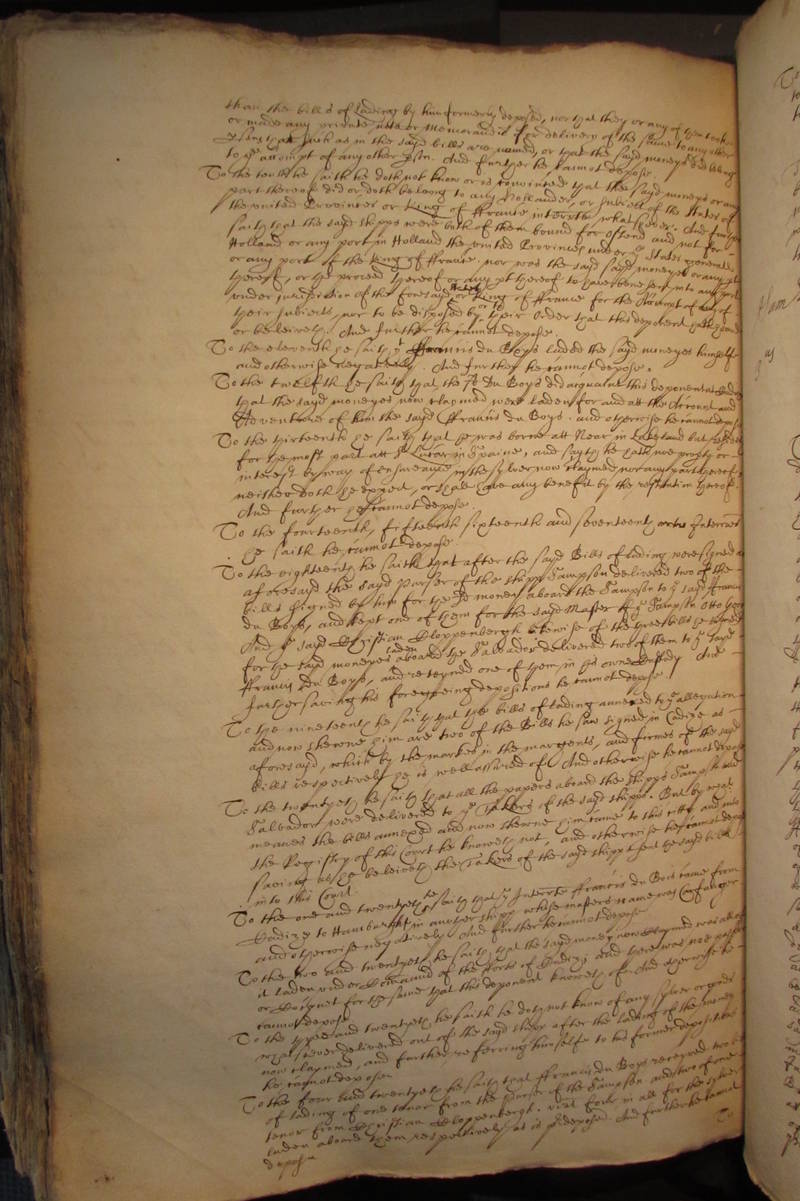 than the bills of Lading by him formerly deposed, nor that they or any of them took
or made any private acts or Memorandu for delivery of the same to any other
psons that such as in the sayd bills are named, or that the sayd moneys did belong
to ye attempt of any other And further he cannot depose
To the tenth he saith he doth not know or is convinced that the sayd moneys or any
part thereof did or doth belong to any Hollander, or subject of the States of
the united Provinces or King of ffrance interpte whatsoever. And further
saith that the sayd shipps were both of them bound for Ostend and not for
Holland or any port in Holland the united Provinces under ye States generall
or any port of the King of ffrance. nor was the sayd moneyes or any pt
thereof, or the proceed thereof or any pt thereof to have bene sent into any port
under jurisdiction of the foresayd States or King of ffrance for the Accompt of any of
their subiects, nor to be disposed by their Order that this deponent hath heard
or beleiveth. And further he cannot depose.
To the eleventh he saith yt ffrancis du Boys laded the sayd moneyes himself
and otherwise negatively. And further he cannot depose.
To the twelfth he saith that the sd Du Boys did acquaint this deponent at
that the sayd moneyes now claymed were laden for and att the Account and
Adventure of him the sayd ffrancis du Boys. and otherwise he cannot depose
To the thirteenth he saith that he was borne att in but
for the most part att St Lucar in Spaine, and sayth he hath no property or
interest by way of ensurance in the sylver now claymed, nor any part thereof
neither doth he expect, or shall have any benefit by the restitution thereof.
And further he cannot depose.
To the fourteenth, fifteenth sixteenth and seventeenth Interries
he saith he cannot depose
To the eighteenth he saith that after the sayd Bills of lading were signed as
aforesayd the sayd Purser of the shipp Sampson delivered two of the
bills signed by him for the sd money aboard the Sampson to ye sayd ffrancis
du Boys, and kept one of them for the sayd Master of ye Sampson Otto
And ye sayd Christian Cloppenbergh likewise of the three bills he signed
for the sayd moneyes laden aboard the Salvador delivered two of them to ye sayd
ffrancis Du Boys, and reteyned one of them in his owne Custody And
further saving his foregoeing depositions he cannot depose
To the nineteenth he saith that the bills of lading annexed to ye allegation
and now shewne him are two of the Bills he saw signed in Cadize as
aforesayd, which by the markes in the margents, and firmes of the sayd
bills respectively he is well assured of. And otherwise he cannot depose
To the twentyeth he saith that all the papers aboard the shipps Sampson and
Salvador were delivered to ye Takers of the sayd shipps. But by what
meanes the bills annexed and now shewne him came to this citty and into
the Registry of this Court he knoweth not, and otherwise he cannot depose
saving as he beleiveth the Takers of the sayd shipps sent the sayd bills
into this Court.
To the one and twentyeth he saith that ye Interrte ffrancis du Bois came from
Cadize to Hamburgh in another shipp whose masters name was
and otherwise negatively And further he cannot depose
To the two and twentyeth he saith that the sayd money now claymed was all of
it laden under Command of the fforts of and there was noe passe
or Cocquet for the same that this deponent knoweth of. And otherwise he
cannot depose.
To the three and twentyeth he saith he doth not know of any silver or goods
whatsoever delivered out of the sayd shipp after the lading of the money
now claymed, and further referring himselfe to his former depositions
he cannot depose.
To the four and twentyeth he saith that ffrancis du Boys receyved two bills
of lading of one tenor from the Purser of the Sampson and two of one
tenor from Christian Cloppenbergh. vizt four in all for the silver
laden aboard them respectively as is predeposed. And further he cannot
depose
To